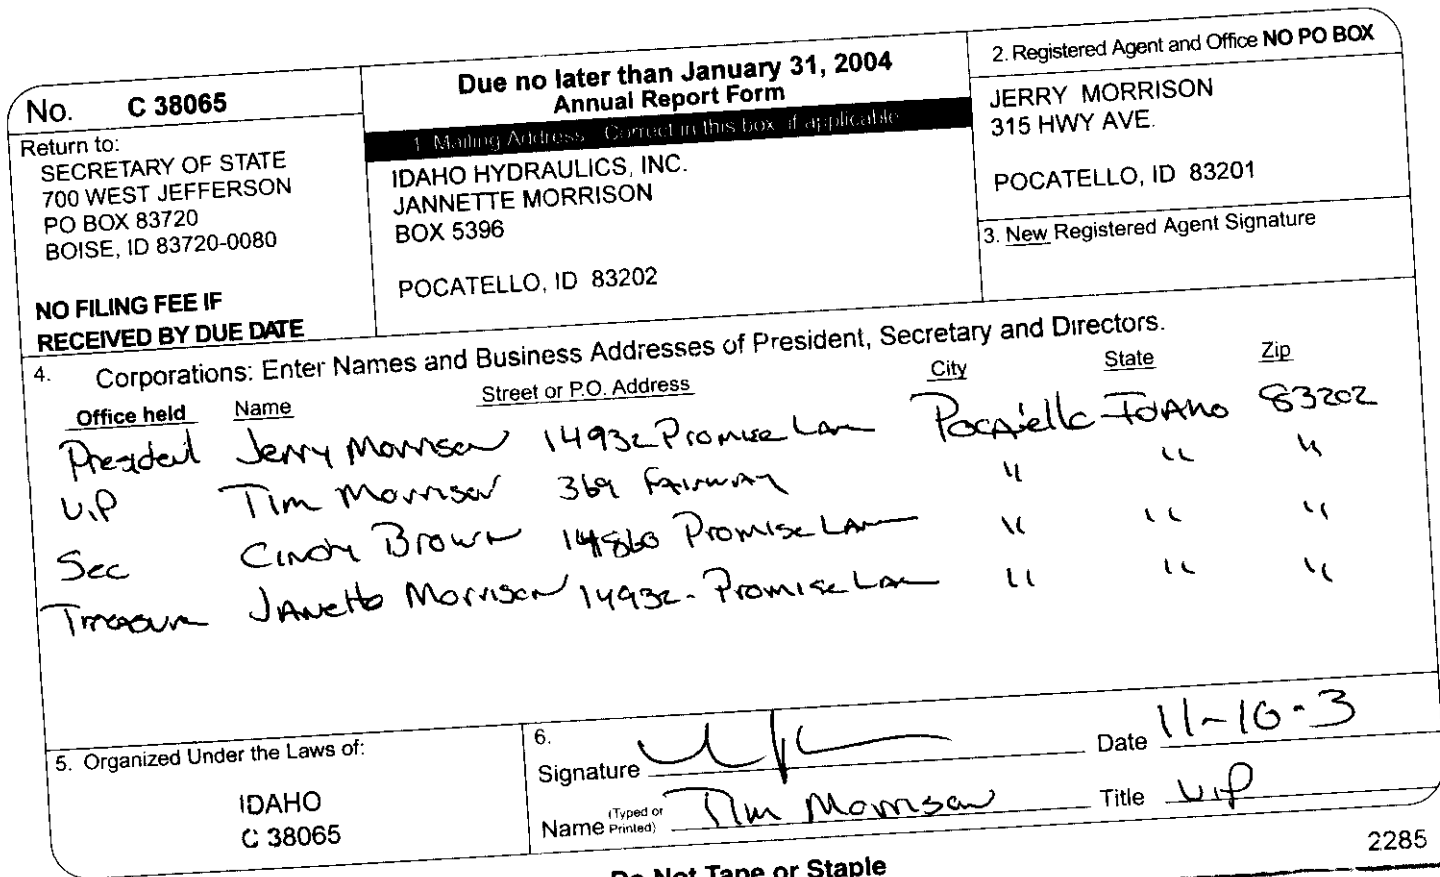 No. C 38065
Return to:
SECRETARY OF STATE
700 WEST JEFFERSON
PO BOX 83720
BOISE, ID 83720-0080
NO FILING FEE IF
RECEIVED BY DUE DATE
Due no later than January 31, 2004
Annual Report Form
1. Mailing Address: Correct in this box if applicable
IDAHO HYDRAULICS, INC.
JANNETTE MORRISON
BOX 5396
POCATELLO, ID 83202
2. Registered Agent and Office NO PO BOX
JERRY MORRISON
315 HWY AVE.
POCATELLO, ID 83201
3. New Registered Agent Signature
4. Corporations: Enter Names and Business Addresses of President, Secretary and Directors.
Office held Name Street or P.O. Address City State Zip
President Jerry Morrison 14932 Promise Lane Pocatello Idaho 83202
V.P Tim Morrison 369 Fairway " " "
Sec Cindy Brown 14860 Promise Lane " " "
Treasurer Janette Morrison 14932 - Promise Lane " " "
5. Organized Under the Laws of:
IDAHO
C 38065
6.
Signature Date 11-10-3
Name (Typed or Printed) Tim Morrison Title V.P
2285
Do Not Tape or Staple